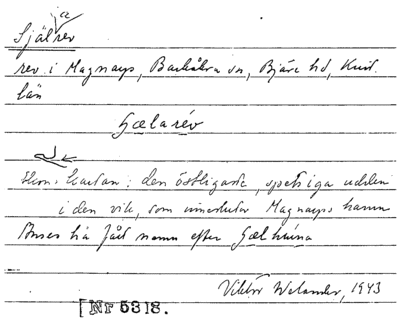 a
Själrev
rev i Magnarp, Barkåkra sn, Bjäre hd, Krist.
län
Gælarév
Ekon. kartan: den östligaste, spetsiga udden
i den vik, som innesluter Magnarps hamn
ha fått namn efter
Viktor Welander, 1943
[Nr 5318.